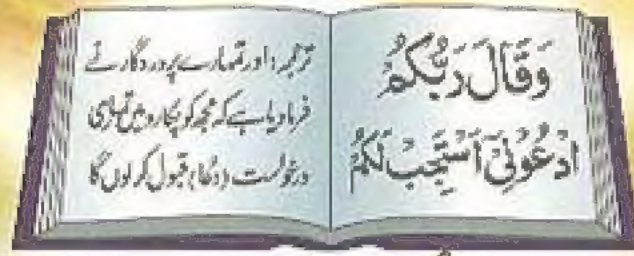 وَقَالَ رَبُّكُمُ
ادْعُوْنِیْۤ اَسْتَجِبْ لَكُمْ
ترجمہ: اور تمہارے پروردگار نے
فرمادیا ہے کہ مجھ کو پکارو میں تمہاری
درخواست (دعا) قبول کرلوں گا